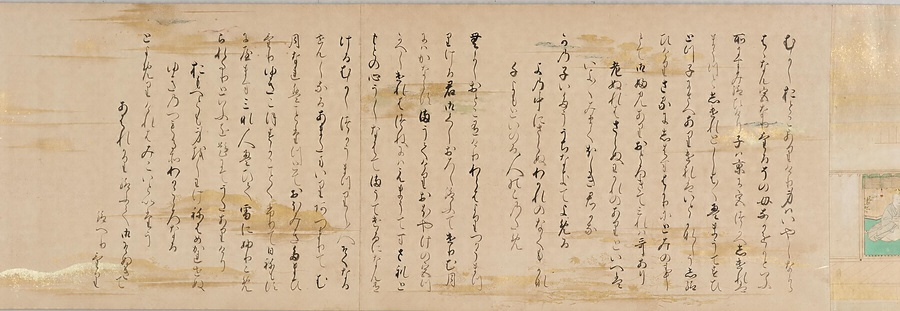 むかしおとこありけり身はいやしなから
はゝなん宮なりけるその母なかをかといふ
所にすみ給ひけり子は京に宮つかへしけれは
まうつとしけれとしは〳〵えまうてすひと
つ子にさへありけれはいとかなしうし給
ひけりさるにしはすはかりにとみの事
とて御ふみありおとろきて見れは哥あり
老ぬれはさらぬわかれのありといへは
いよ〳〵みまくほしき君かな
かの子いたううちなきてよめる
よの中にさらぬわかれのなくもかな
千よもといのる人の子のため
むかしおとこ有けりわらはよりつかうまつ
りける君御くしおろし給ふてけりむ月
にはかならすまうてけりおほやけの宮つか
へしけれはつねにはえまうてすされと
もとの心うしなはてまうてけるになん有
けるむかしつかうまつりし人そくなる
せんしなるあまたまいりあつまりてむ
月なれは事たつとておほみきたまひ
けりゆきこほすかことふりて日ねもす
にやますみな人ゑひて雪にふりこめ
られたりといふを題にてうたありけり
おもへとも身をしわけねはめかれせぬ
ゆきのつもるそわか心なる
とよめりけれはみこいといたう
あはれかり給ふて御そぬきて
給へりけり